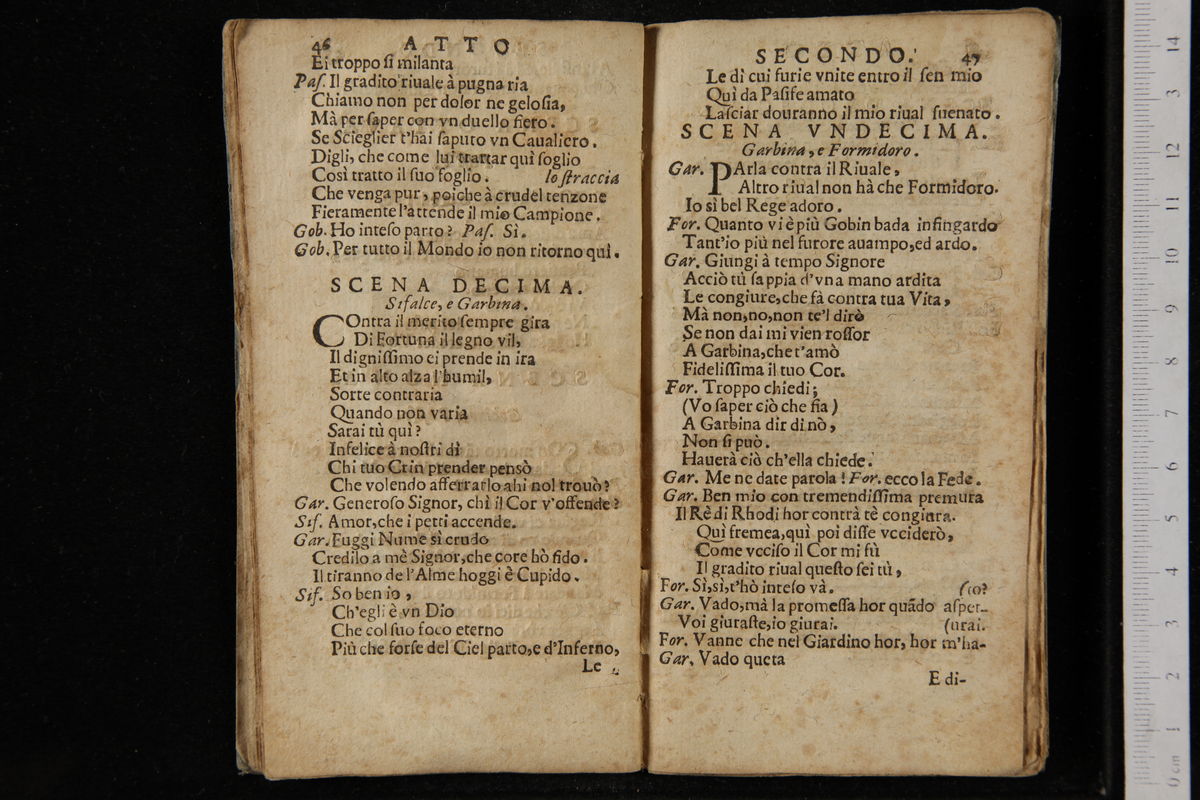 46 ATTO
Ei troppo ſi milanta
Paſ. Il gradito riuale à pugna ria
Chiamo non per dolor ne geloſia,
Mà per ſaper con vn duello fiero.
Se Scieglier t'hai ſaputo vn Caualiero.
Digli, che come lui trattar quì ſoglio
Così tratto il ſuo foglio. lo ſtraccia
Che venga pur, poiche à crudel tenzone
Fieramente l'attende il mio Campione.
Gob. Ho inteſo parto? Paſ. Sì.
Gob. Per tutto il Mondo io non ritorno quì.
SCENA DECIMA.
Sifalce, e Garbina.
COntra il merito ſempre gira
Di Fortuna il legno vil,
Il digniſſimo ei prende in ira
Et in alto alza l'humil,
Sorte contraria
Quando non varia
Sarai tù quì?
Infelice à noſtri dì
Chi tuo Crin prender pensò
Che volendo afferrarlo ahi nol trouò?
Gar. Generoſo Signor, chì il Cor v'offende?
Sif. Amor, che i petti accende.
Gar. Fuggi Nume sì crudo
Credilo a mè Signor, che core hò fido.
Il tiranno de l'Alme hoggi è Cupido.
Sif. So ben io,
Ch'egli è vn Dio
Che col ſuo foco eterno
Più che forſe del Ciel parto, e d'Inferno,
Le
SECONDO. 47
Le di cui furie vnite entro il ſen mio
Quì da Paſife amato
Laſciar douranno il mio riual ſuenato.
SCENA VNDECIMA.
Garbina, e Formidoro.
Gar. PArla contra il Riuale,
Altro riual non hà che Formidoro.
Io sì bel Rege adoro.
For. Quanto vi è più Gobin bada infingardo
Tant'io più nel furore auampo, ed ardo.
Gar. Giungi à tempo Signore
Acciò tù ſappia d'vna mano ardita
Le congiure, che fà contra tua Vita,
Mà non, no, non te'l dirò
Se non dai mi vien roſſor
A Garbina, che t'amò
Fideliſſima il tuo Cor.
For. Troppo chiedi;
(Vo ſaper ciò che ſia)
A Garbina dir di nò,
Non ſi può.
Hauerà ciò ch'ella chiede.
Gar. Me ne date parola! For. ecco la Fede.
Gar. Ben mio con tremendiſſima premura
Il Rè di Rhodi hor contrà tè congiura.
Quì fremea, quì poi diſſe vcciderò,
Come vcciſo il Cor mi fù
Il gradito riual queſto ſei tù,
For. Sì, sì, t'hò inteſo và. (to?
Gar. Vado, mà la promeſſa hor quãdo aſpet-
Voi giuraſte, io giurai. (urai.
For. Vanne che nel Giardino hor, hor m'ha-
Gar. Vado queta
E di-
14
13
12
11
10
9
8
7
6
5
4
3
2
1
0 cm